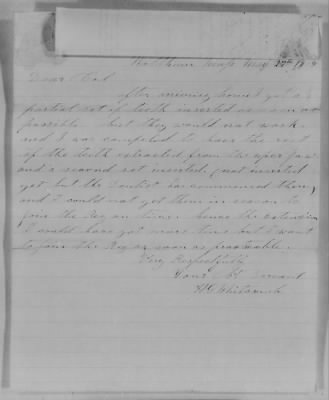 Waltham Mass May 27th 186
Dear Col
after arriving home I got a
partial set of teeth inserted as soon as
possible but they would not work
and I was compelled to have the rest
of the teeth extracted from the uper jaw
and a second set inserted, (not inserted
yet but the Dentist has commenced them)
and I could not get them in season to
join the Reg on time. hence the extension
I could have got more time but I want
to join the Reg as soon as practicable.
Very Respectfully
Your Obt Servant
H G